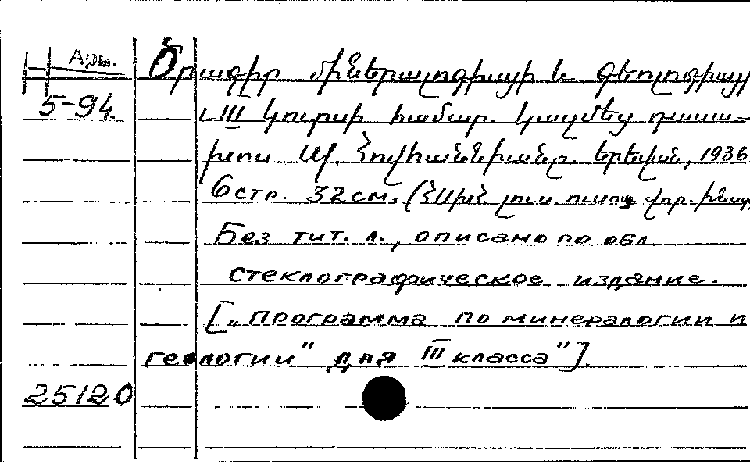 Арм.
Ծրագիր միներալոգիայի և գեոլոգիայի
5-94
III կուրսի համար. Կազմեց դասա-
խոս Ա. Հովհաննիսյանը. Երևան, 1936
6 стр. 32 см. (ՀՍԽՀ լուս.
Без тит. л., описано по обл
стеклографическое издание.
[„программа по минералогии и
геологии" для III класса"].
25120